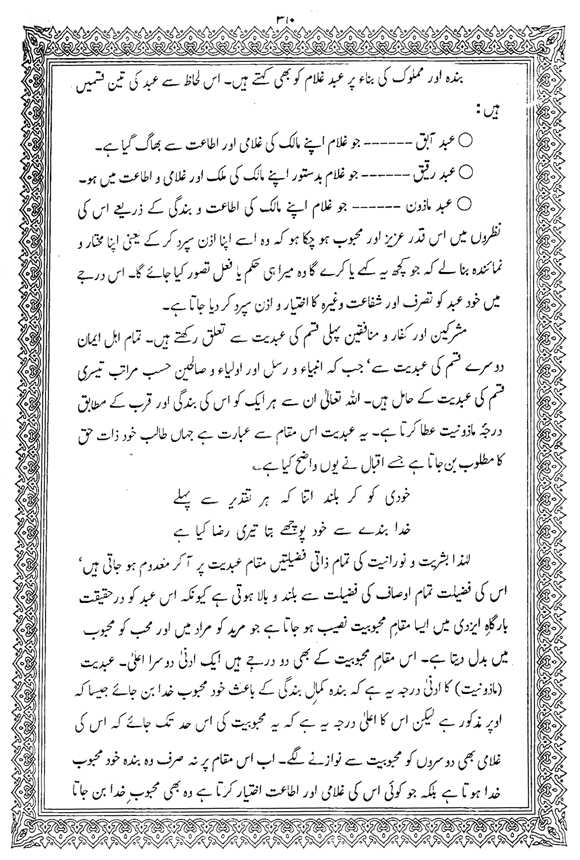 ۳۱۰
بندہ اور مملوک کی بناء پر عبد غلام کو بھی کہتے ہیں۔ اس لحاظ سے عبد کی تین قسمیں
ہیں :
○ عبد آبق ------ جو غلام اپنے مالک کی غلامی اور اطاعت سے بھاگ گیا ہے۔
○ عبد رقیق ------ جو غلام بدستور اپنے مالک کی ملک اور غلامی و اطاعت میں ہو۔
○ عبد ماذون ------ جو غلام اپنے مالک کی اطاعت و بندگی کے ذریعے اس کی
نظروں میں اس قدر عزیز اور محبوب ہو چکا ہو کہ وہ اسے اپنا اذن سپرد کر کے یعنی اپنا مختار و
نمائندہ بنا لے کہ جو کچھ یہ کہے یا کرے گا وہ میرا ہی حکم یا فعل تصور کیا جائے گا۔ اس درجے
میں خود عبد کو تصرف اور شفاعت وغیرہ کا اختیار و اذن سپرد کر دیا جاتا ہے۔
مشرکین اور کفار و منافقین پہلی قسم کی عبدیت سے تعلق رکھتے ہیں۔ تمام اہل ایمان
دوسرے قسم کی عبدیت سے‘ جب کہ انبیاء و رسل اور اولیاء و صالحین حسب مراتب تیسری
قسم کی عبدیت کے حامل ہیں۔ اللہ تعالیٰ ان سے ہر ایک کو اس کی بندگی اور قرب کے مطابق
درجہٴ ماذونیت عطا کرتا ہے۔ یہ عبدیت اس مقام سے عبارت ہے جہاں طالب خود ذات حق
کا مطلوب بن جاتا ہے جسے اقبال نے یوں واضح کیا ہے۔
خودی کو کر بلند اتنا کہ ہر تقدیر سے پہلے
خدا بندے سے خود پوچھے بتا تیری رضا کیا ہے
لہٰذا بشریت و نورانیت کی تمام ذاتی فضیلتیں مقام عبدیت پر آ کر معدوم ہو جاتی ہیں‘
اس کی فضیلت تمام اوصاف کی فضیلت سے بلند و بالا ہوتی ہے کیونکہ اس عبد کو درحقیقت
بارگاہِ ایزدی میں ایسا مقامِ محبوبیت نصیب ہو جاتا ہے جو مرید کو مراد میں اور محب کو محبوب
میں بدل دیتا ہے۔ اس مقام محبوبیت کے بھی دو درجے ہیں ایک ادنیٰ دوسرا اعلیٰ۔ عبدیت
(ماذونیت) کا ادنیٰ درجہ یہ ہے کہ بندہ کمالِ بندگی کے باعث خود محبوب خدا بن جائے جیسا کہ
اوپر مذکور ہے لیکن اس کا اعلیٰ درجہ یہ ہے کہ یہ محبوبیت کی اس حد تک جائے کہ اس کی
غلامی بھی دوسروں کو محبوبیت سے نوازنے لگے۔ اب اس مقام پر نہ صرف وہ بندہ خود محبوب
خدا ہوتا ہے بلکہ جو کوئی اس کی غلامی اور اطاعت اختیار کرتا ہے وہ بھی محبوب خدا بن جاتا